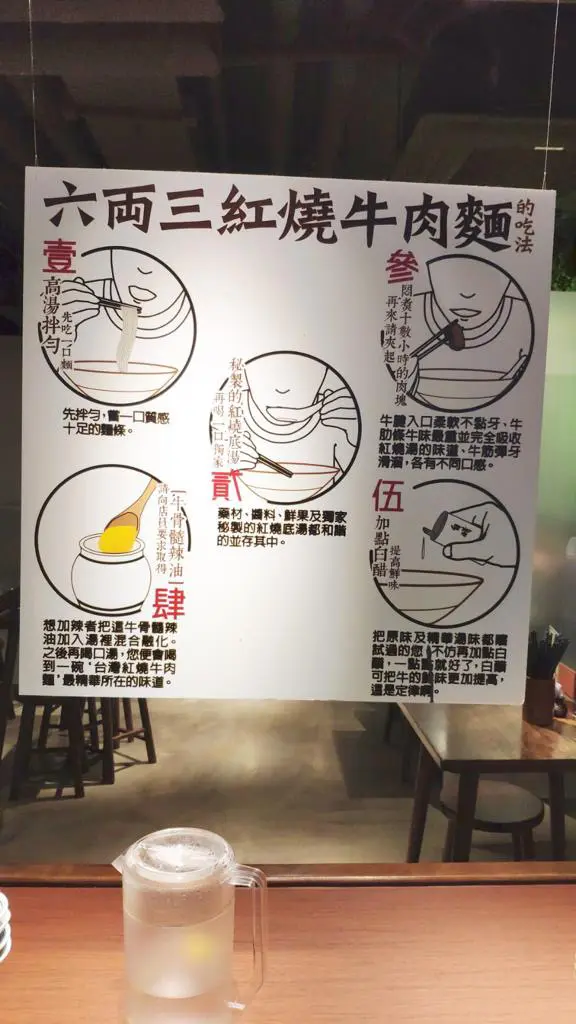 六両三紅燒牛肉麵
的吃法
壹
高湯拌勻
先吃一口麵
先拌勻，嘗一口質感
十足的麵條。
貳
秘製的紅燒底湯
再喝一口獨家
藥材、醬料、鮮果及獨家
秘製的紅燒底湯都和諧
的並存其中。
參
悶煮十數小時的肉塊
再來請夾起
牛腱入口柔軟不黏牙、牛
肋條牛味最重並完全吸收
紅燒湯的味道、牛筋彈牙
滑溜，各有不同口感。
肆
牛骨髓辣油
請向店員要求取得
想加辣者把這牛骨髓辣
油加入湯裡混合融化。
之後再喝口湯，您便會喝
到一碗‘台灣紅燒牛肉
麵’最精華所在的味道。
伍
加點白醋
提高鮮味
把原味及精華湯味都嚐
試過的您，不仿再加點白
醋，一點點就好了，白醋
可把牛的鮮味更加提高，
這是定律啊。